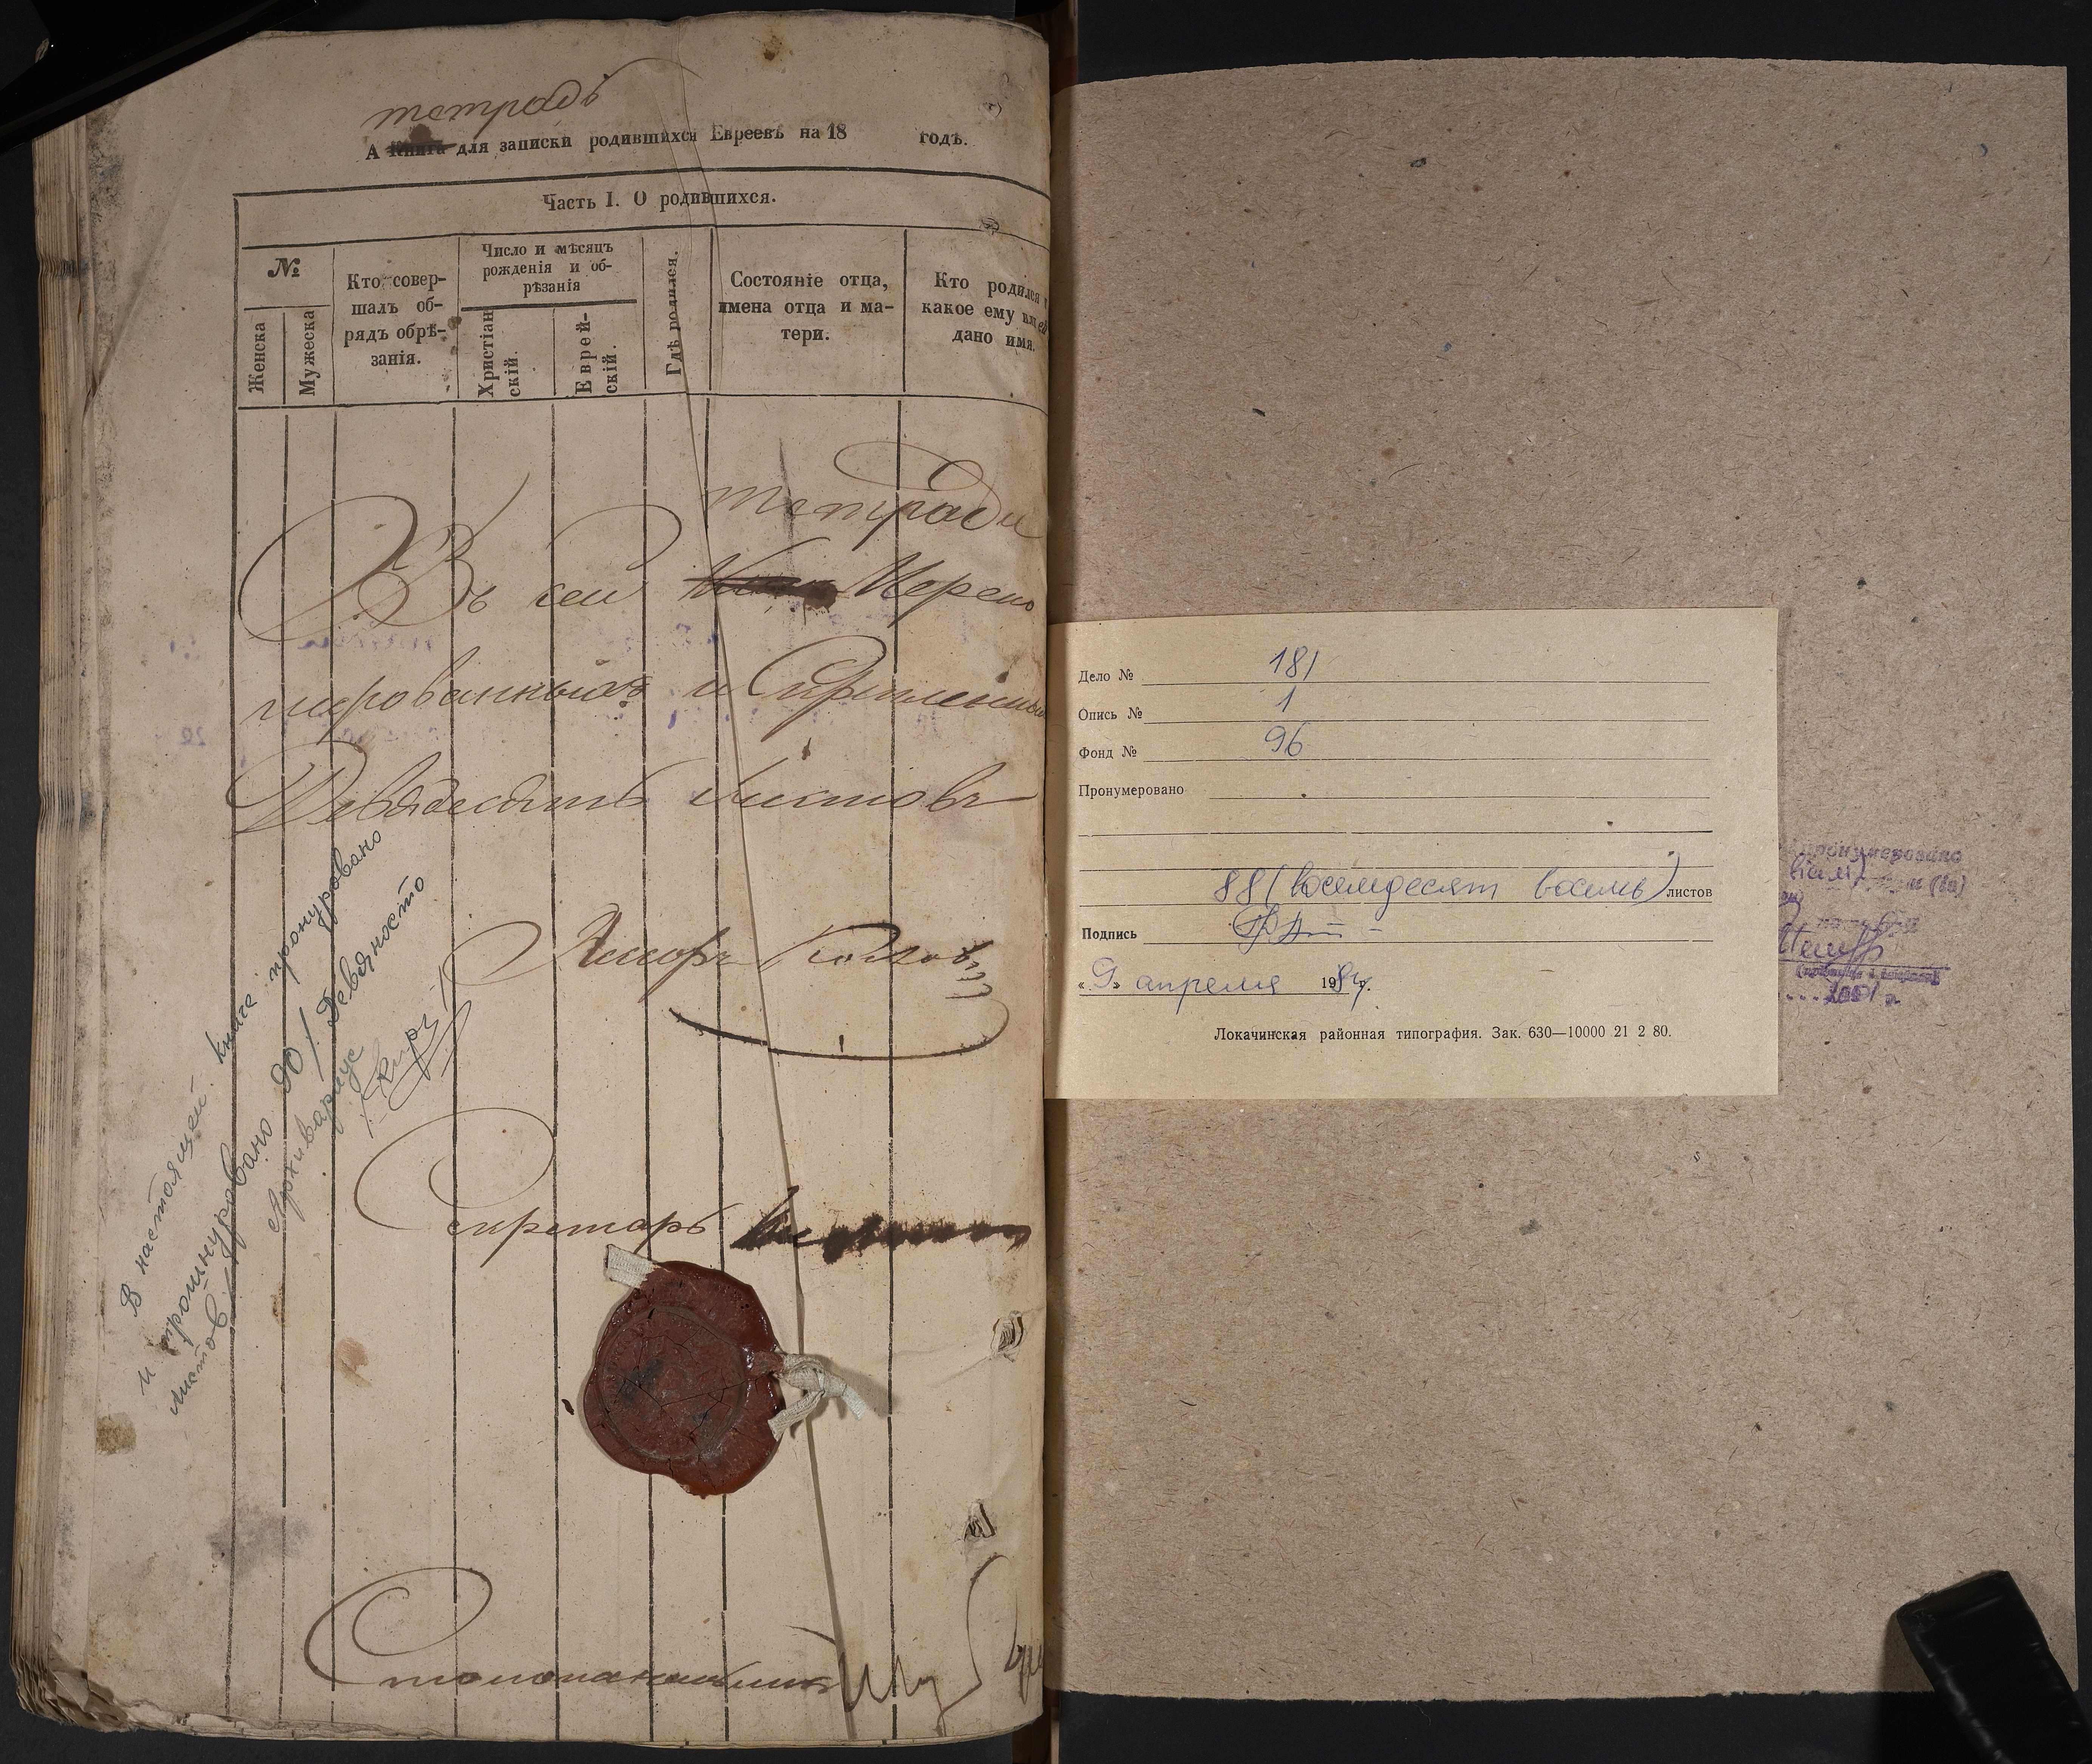 тетрадь
А Книга для записки родившихся Евреевъ на 18 годъ.
Часть I. О родившихся.
№
Женска
Мужеска
Кто совер-
шалъ об-
рядъ обрѣ-
занія.
Число и мѣсяцъ
рожденія и об-
рѣзанія
Христіан
скій.
Еврей-
скій.
Гдѣ родился.
Состояніе отца,
имена отца и ма-
тери.
Кто родился и
какое ему или ей
дано имя.
тетради
Въ сей Нерено
мерованныхъ и Скрепленныхъ
Девядесятъ Листовъ
Секретарь
Столоначальникъ
В настоящей книге пронуровано
и прошнуровано 90/девяносто
листов/
Архивариус
Дело № 181
Опись № 1
Фонд № 96
Пронумеровано
88 (восемдесят восемь) листов
Подпись
«9» апреля 1984г.
Локачинская районная типография. Зак. 630—10000 21 2 80.
Пронумеровано